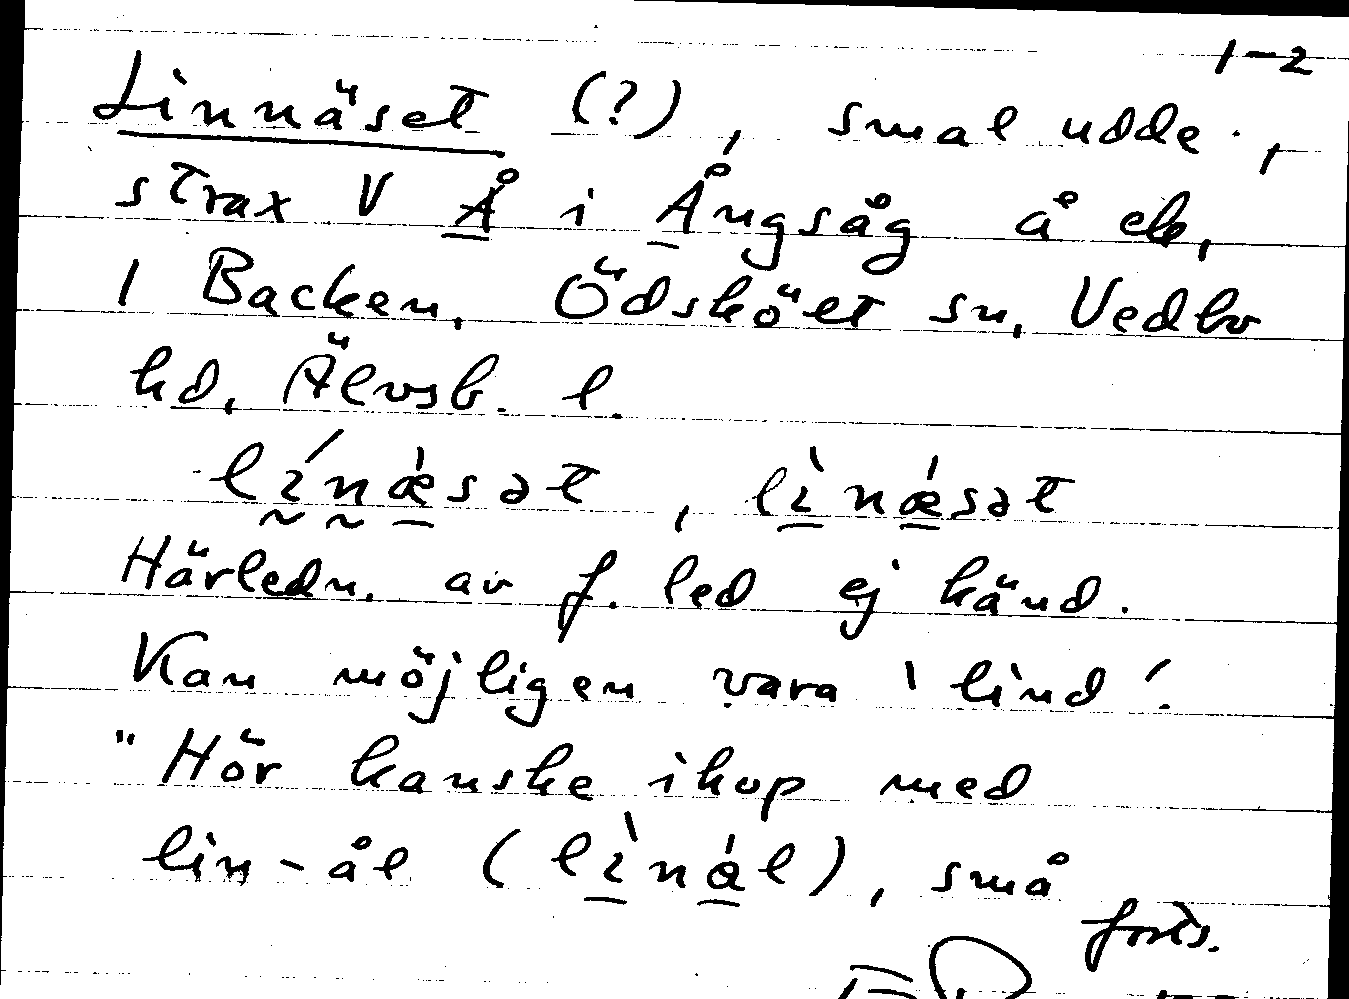 1-2
Linnäset (?), smal udde.,
strax V Å i Ångsåg å ek,
1 Backen, Ödsköet sn, Vedbo
hd, Älvsb. l.
línæ̀sət, lìnǽsət
Härledn. av f. led ej känd.
Kan möjligen vara 'lind'.
"Hör kanske ihop med
lin-ål (lìnál), små
forts.